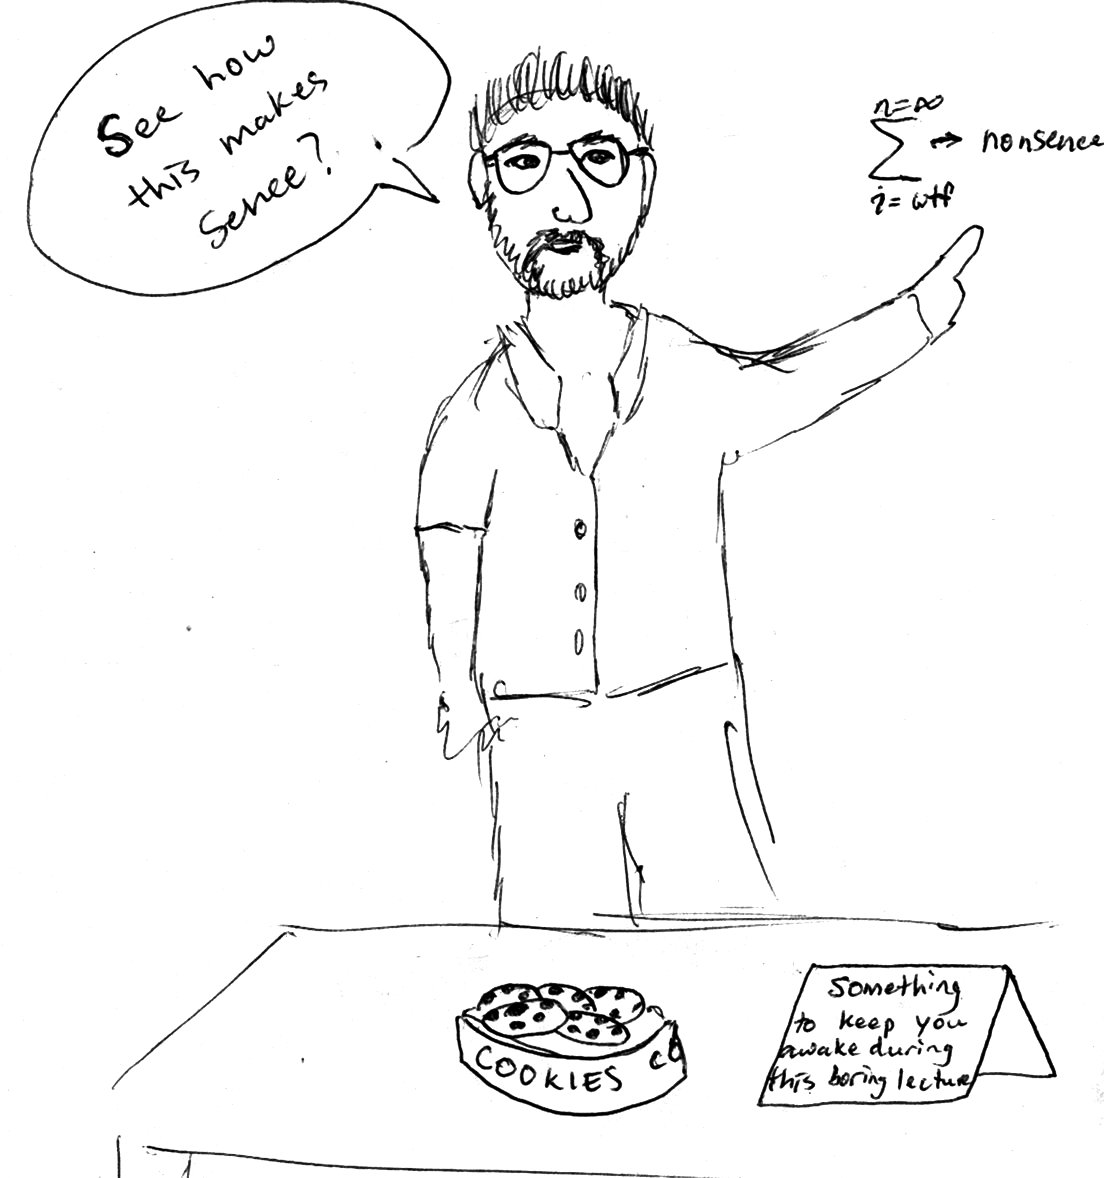 See how
this makes
sence?
n=∞
∑ → nonsence
i= wtf
COOKIES CO
Something
to keep you
awake during
this boring lecture